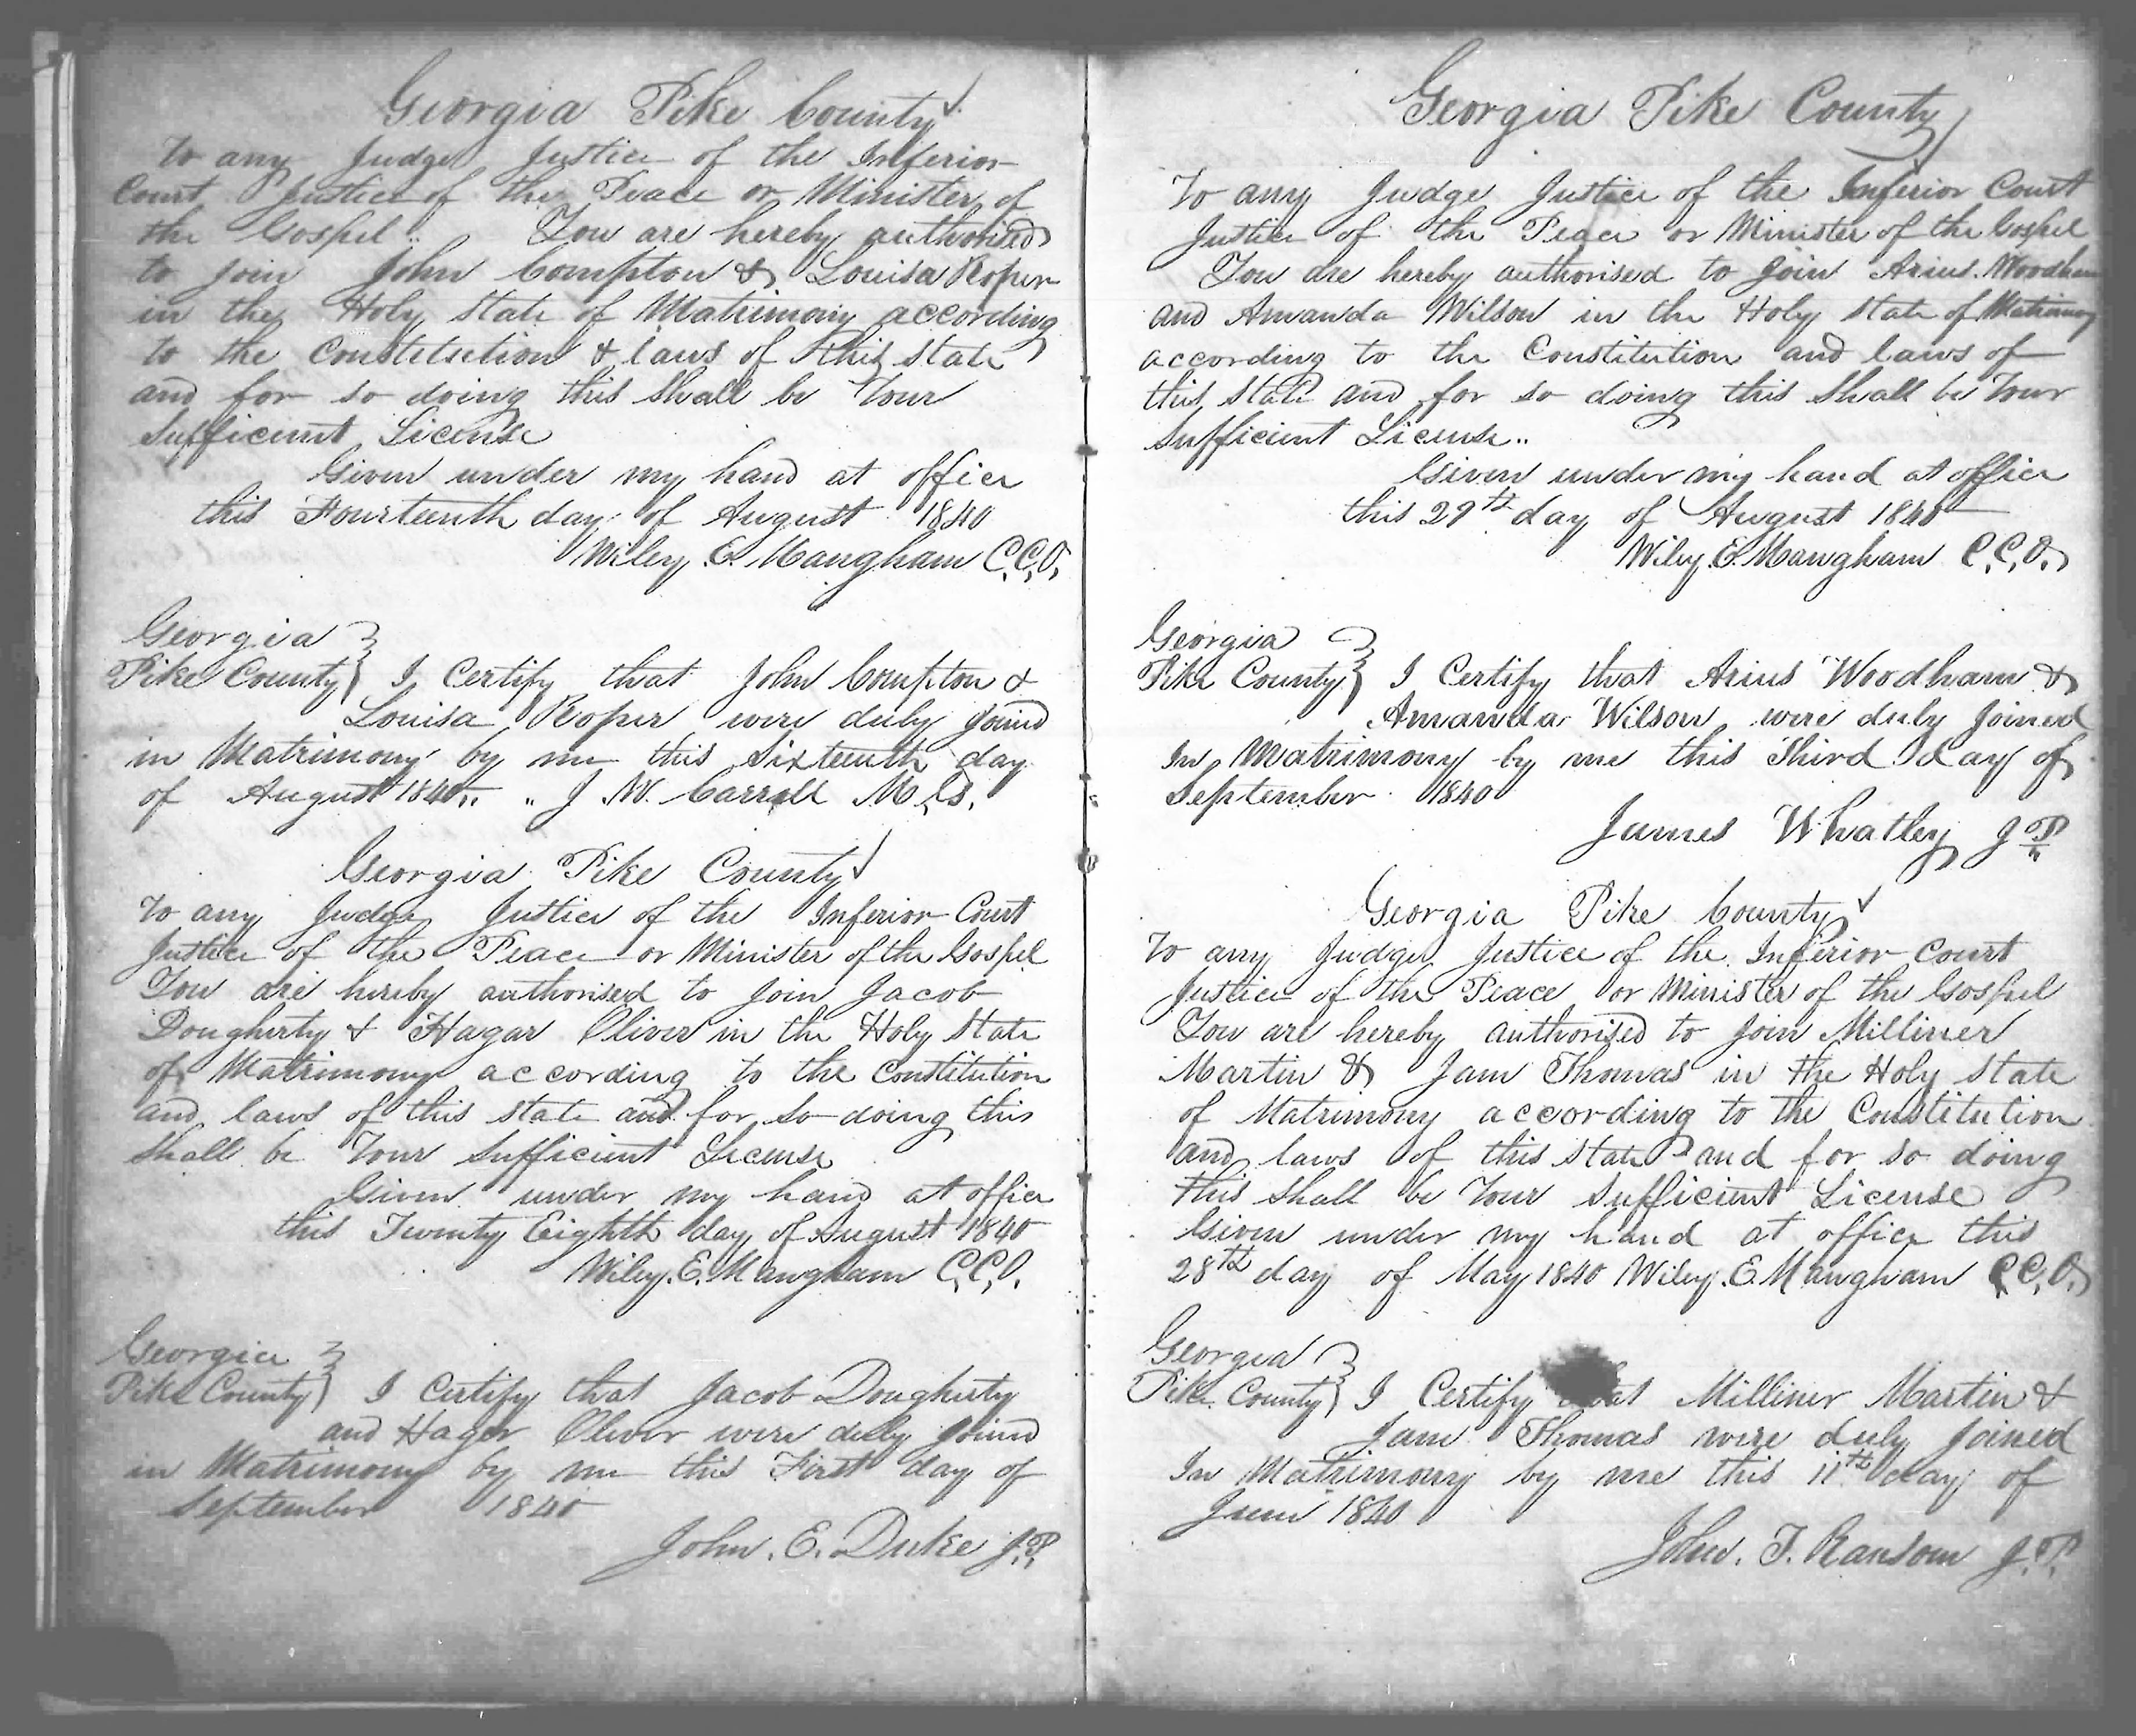 Georgia Pike County
To any Judge Justice of the Inferior
Court Justice of the Peace or Minister of
the Gospel.. You are hereby authorised
to join John Compton & Louisa Roper
in the Holy State of Matrimony according
to the Constitution & laws of this state
and for so doing this Shall be Your
Sufficient License
Given under my hand at office
this Fourteenth day of August 1840
Wiley. E. Mangham C.C.O.
Georgia
Pike County I Certify that John Compton &
Louisa Roper were duly joined
in Matrimony by me this Sixteenth day
of August 1840.. " J W. Carroll M.G.
Georgia Pike County
To any Judge Justice of the Inferior Court
Justice of the Peace or Minister of the Gospel
You are hereby authorised to join Jacob
Dougherty & Hagar Oliver in the Holy State
of Matrimony according to the Constitution
and laws of this state and for so doing this
Shall be Your Sufficient License
Given under my hand at office
this Twenty Eighth day of August 1840
Wiley. E. Mangham C.C.O.
Georgia
Pike County I Certify that Jacob Dougherty
and Hager Oliver were duly joined
in Matrimony by me this First day of
September 1840
John. E. Duke J.P.
Georgia Pike County
To any Judge Justice of the Inferior Court
Justice of the Peace or Minister of the Gospel
You are hereby authorised to join Arius. Woodham
and Amanda Wilson in the Holy State of Matrimony
according to the Constitution and laws of
this State and for so doing this Shall be Your
Sufficient License..
Given under my hand at office
this 29th day of August 1840
Wiley. E. Mangham C.C.O.
Georgia
Pike County I Certify that Arius Woodham &
Amanda Wilson were duly joined
In Matrimony by me this Third day of
September 1840
James Whatley JP
Georgia Pike County
To any Judge Justice of the Inferior Court
Justice of the Peace or Minister of the Gospel
You are hereby authorised to join Milliner
Martin & Jam Thomas in the Holy State
of Matrimony according to the Constitution
and laws of this state and for so doing
this Shall be Your Sufficient License
Given under my hand at office this
28th day of May 1840 Wiley. E. Mangham C.C.O.
Georgia
Pike County I Certify that Milliner Martin &
Jam Thomas were duly joined
In Matrimony by me this 11th day of
June 1840
John. T. Ransom J.P.